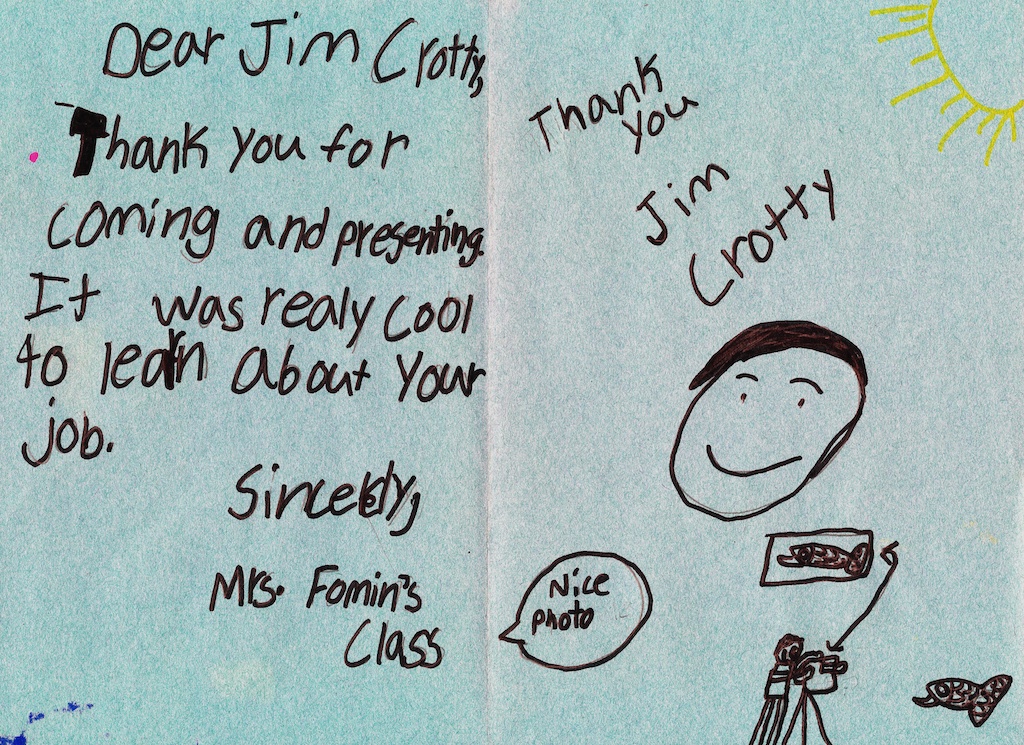 Dear Jim Crotty,
Thank you for
coming and presenting.
It was realy cool
to learn about your
job.
Sincerely,
Mrs. Fomin's
Class
Thank
you
Jim
Crotty
Nice
photo